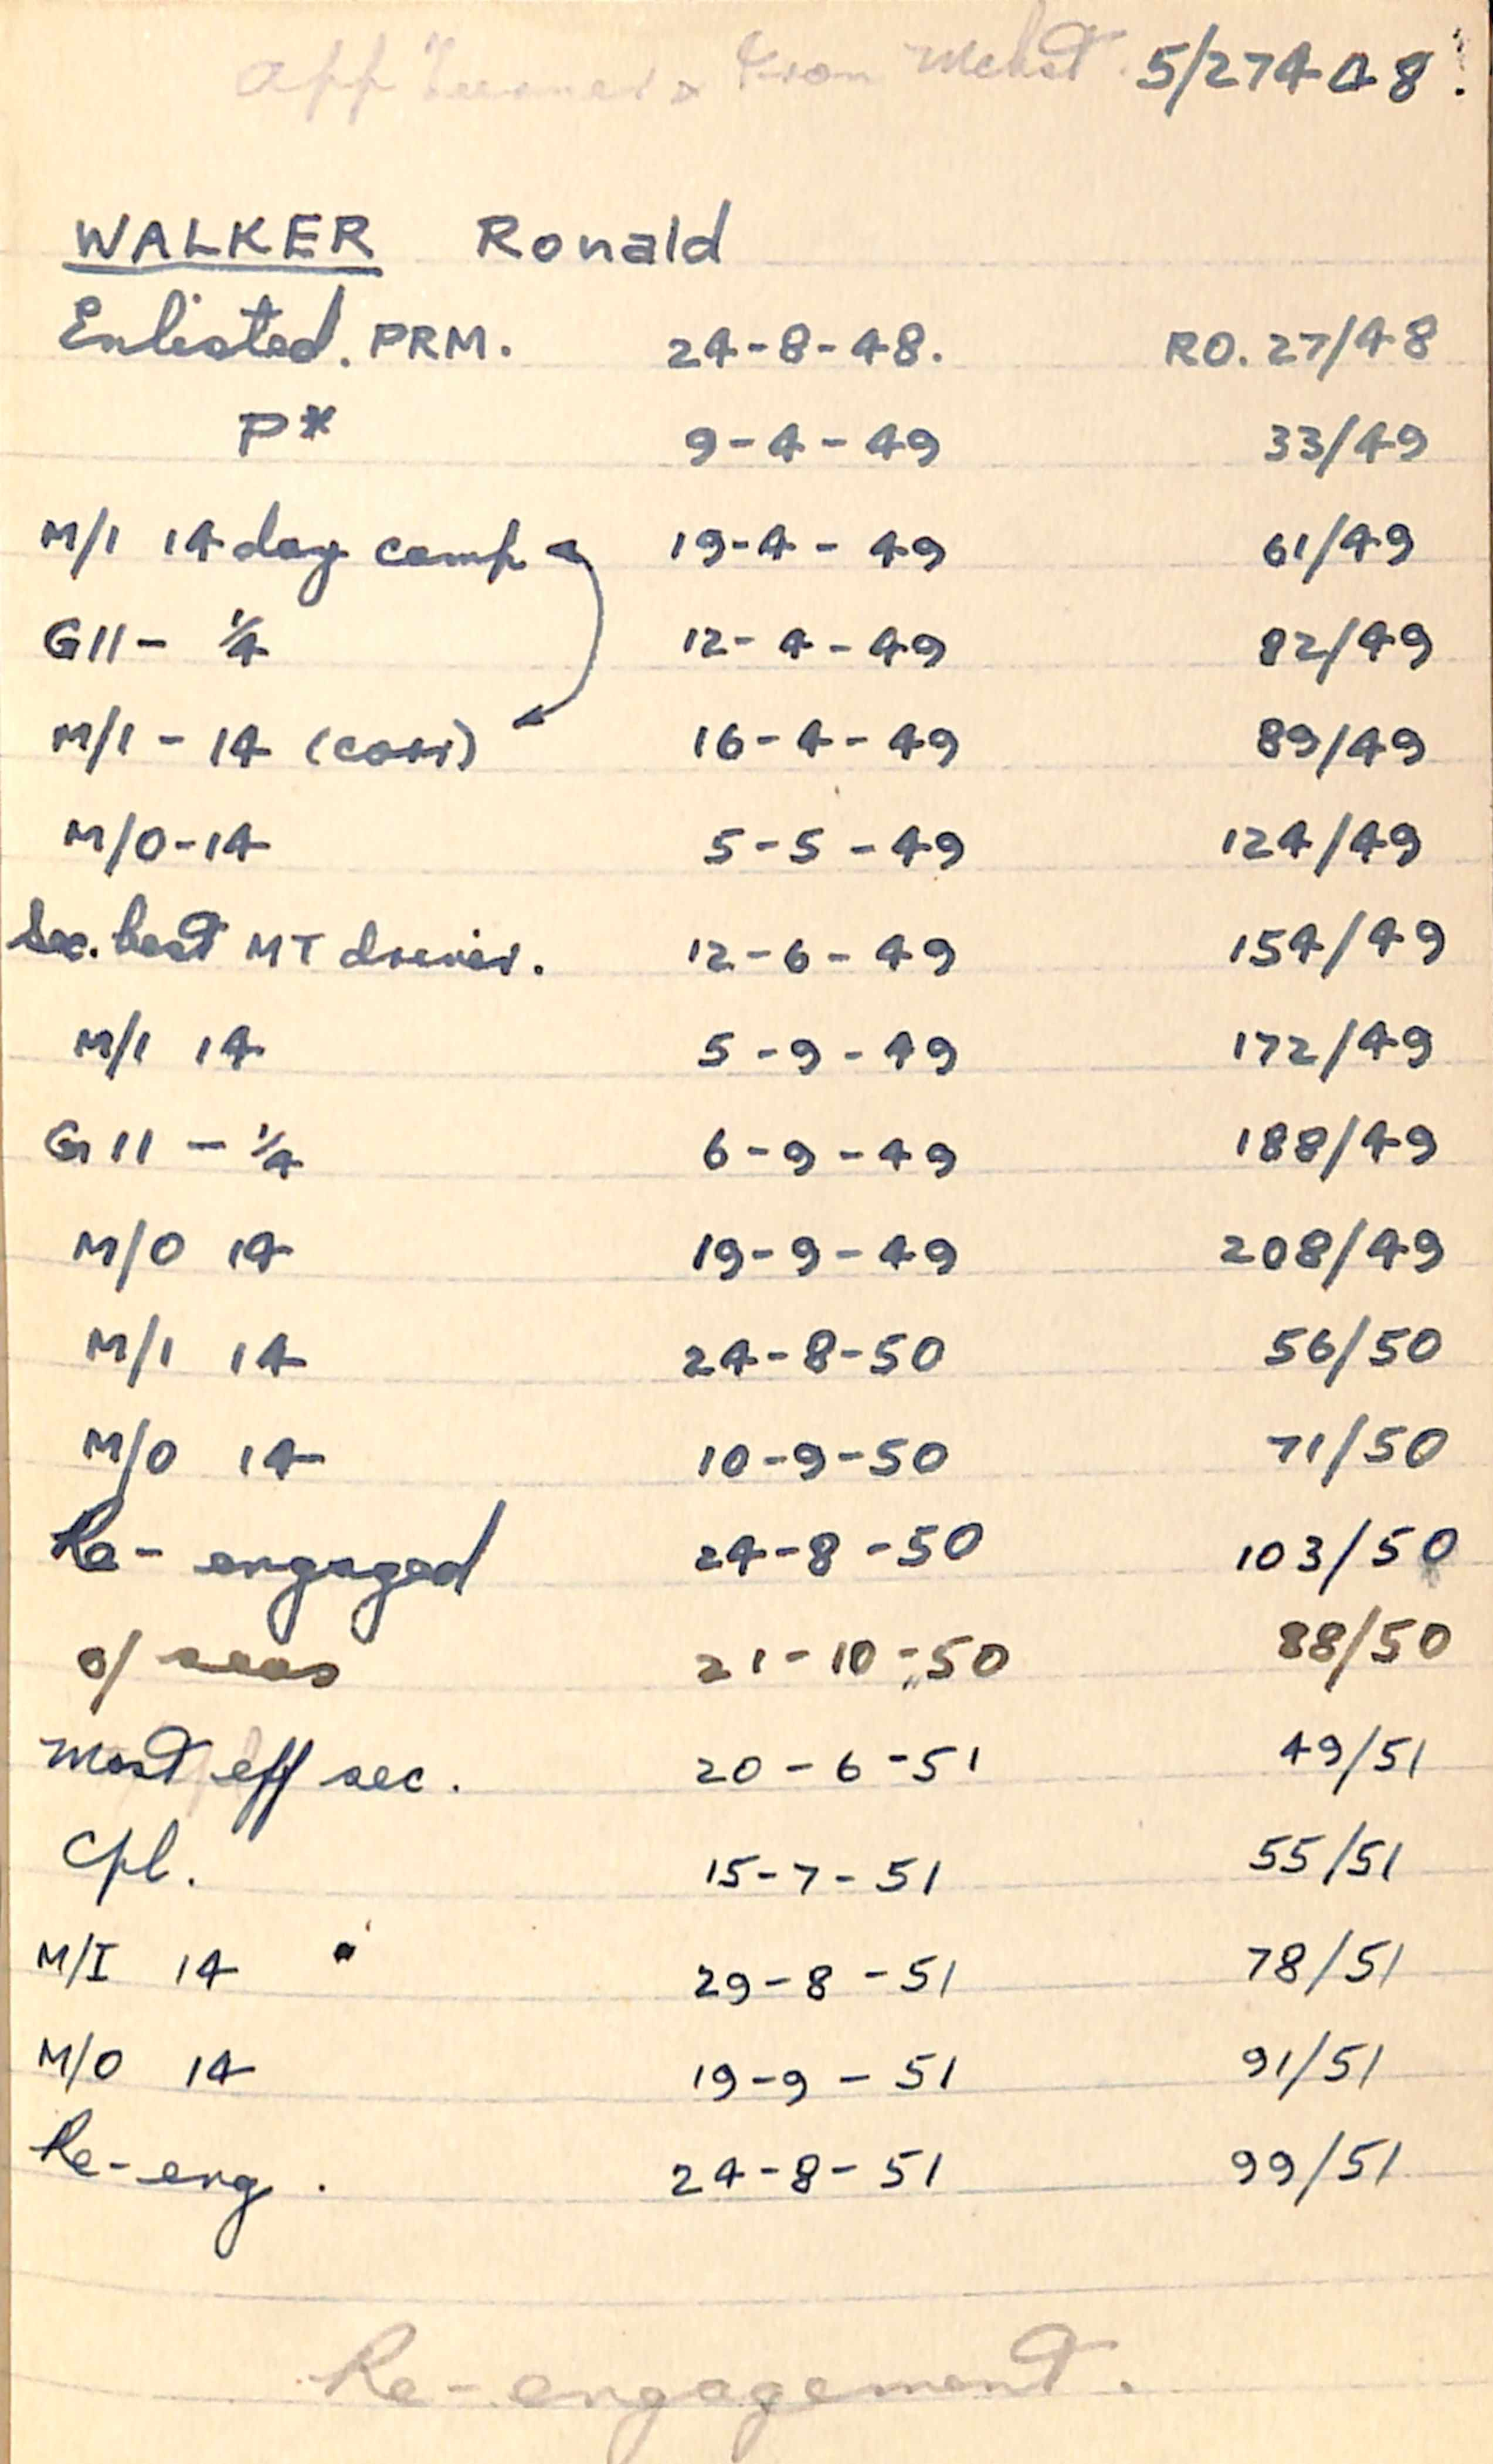 App Turner & Iron 5/27448
WALKER Ronald
Enlisted. PRM. 24-8-48. RO. 27/48
P* 9-4-49 33/49
M/I 14 day camp 19-4-49 61/49
G11 - 1/4 12-4-49 82/49
M/I - 14 (corr) 16-4-49 89/49
M/O - 14 5-5-49 124/49
Sec. best MT driver. 12-6-49 154/49
M/I 14 5-9-49 172/49
G11 - 1/4 6-9-49 188/49
M/O 14 19-9-49 208/49
M/I 14 24-8-50 56/50
M/O 14 10-9-50 71/50
Re-engaged 24-8-50 103/50
o/seas 21-10-50 88/50
Most eff sec. 20-6-51 49/51
Cpl. 15-7-51 55/51
M/I 14 29-8-51 78/51
M/O 14 19-9-51 91/51
Re-eng. 24-8-51 99/51
Re-engagement.